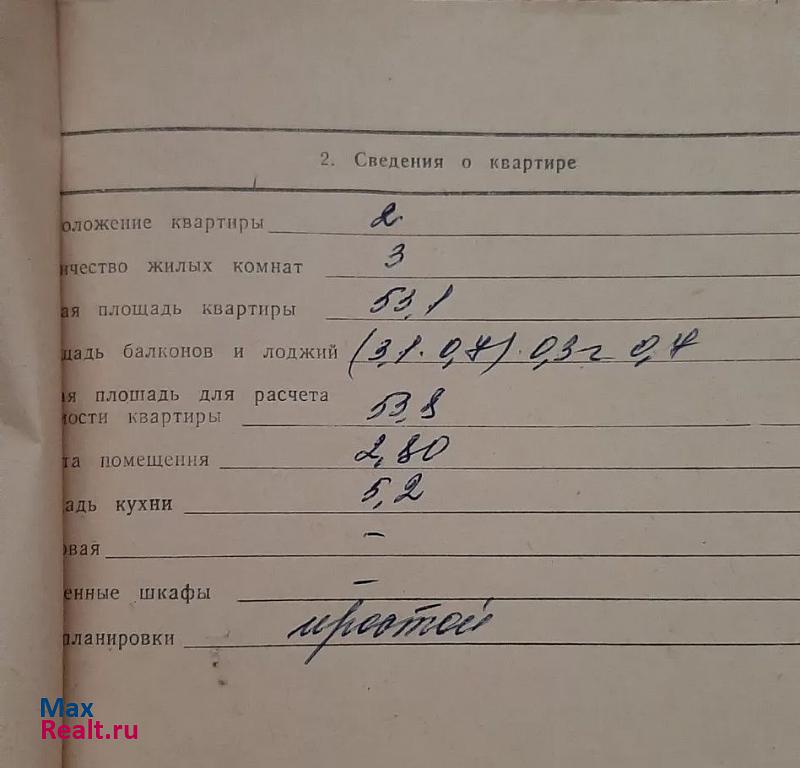 2. Сведения о квартире
оложение квартиры 2
ичество жилых комнат 3
ая площадь квартиры 53,1
щадь балконов и лоджий (3,1 · 0,7) · 0,3 = 0,7
ая площадь для расчета
ости квартиры 53,8
та помещения 2,80
адь кухни 5,2
овая –
енные шкафы –
планировки простой
Max
Realt.ru